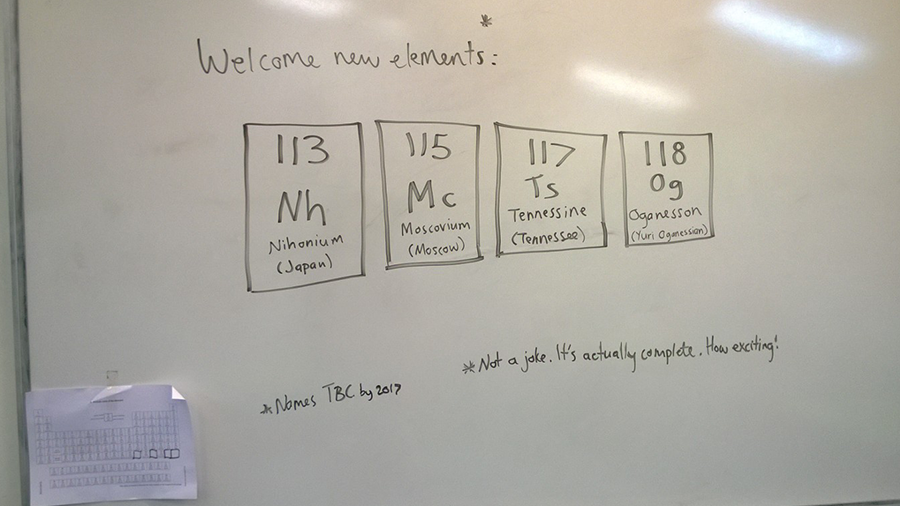 *
Welcome new elements:
113
Nh
Nihonium
(Japan)
115
Mc
Moscovium
(Moscow)
117
Ts
Tennessine
(Tennessee)
118
Og
Oganesson
(Yuri Oganessian)
*Not a joke. It's actually complete. How exciting!
*Names TBC by 2017